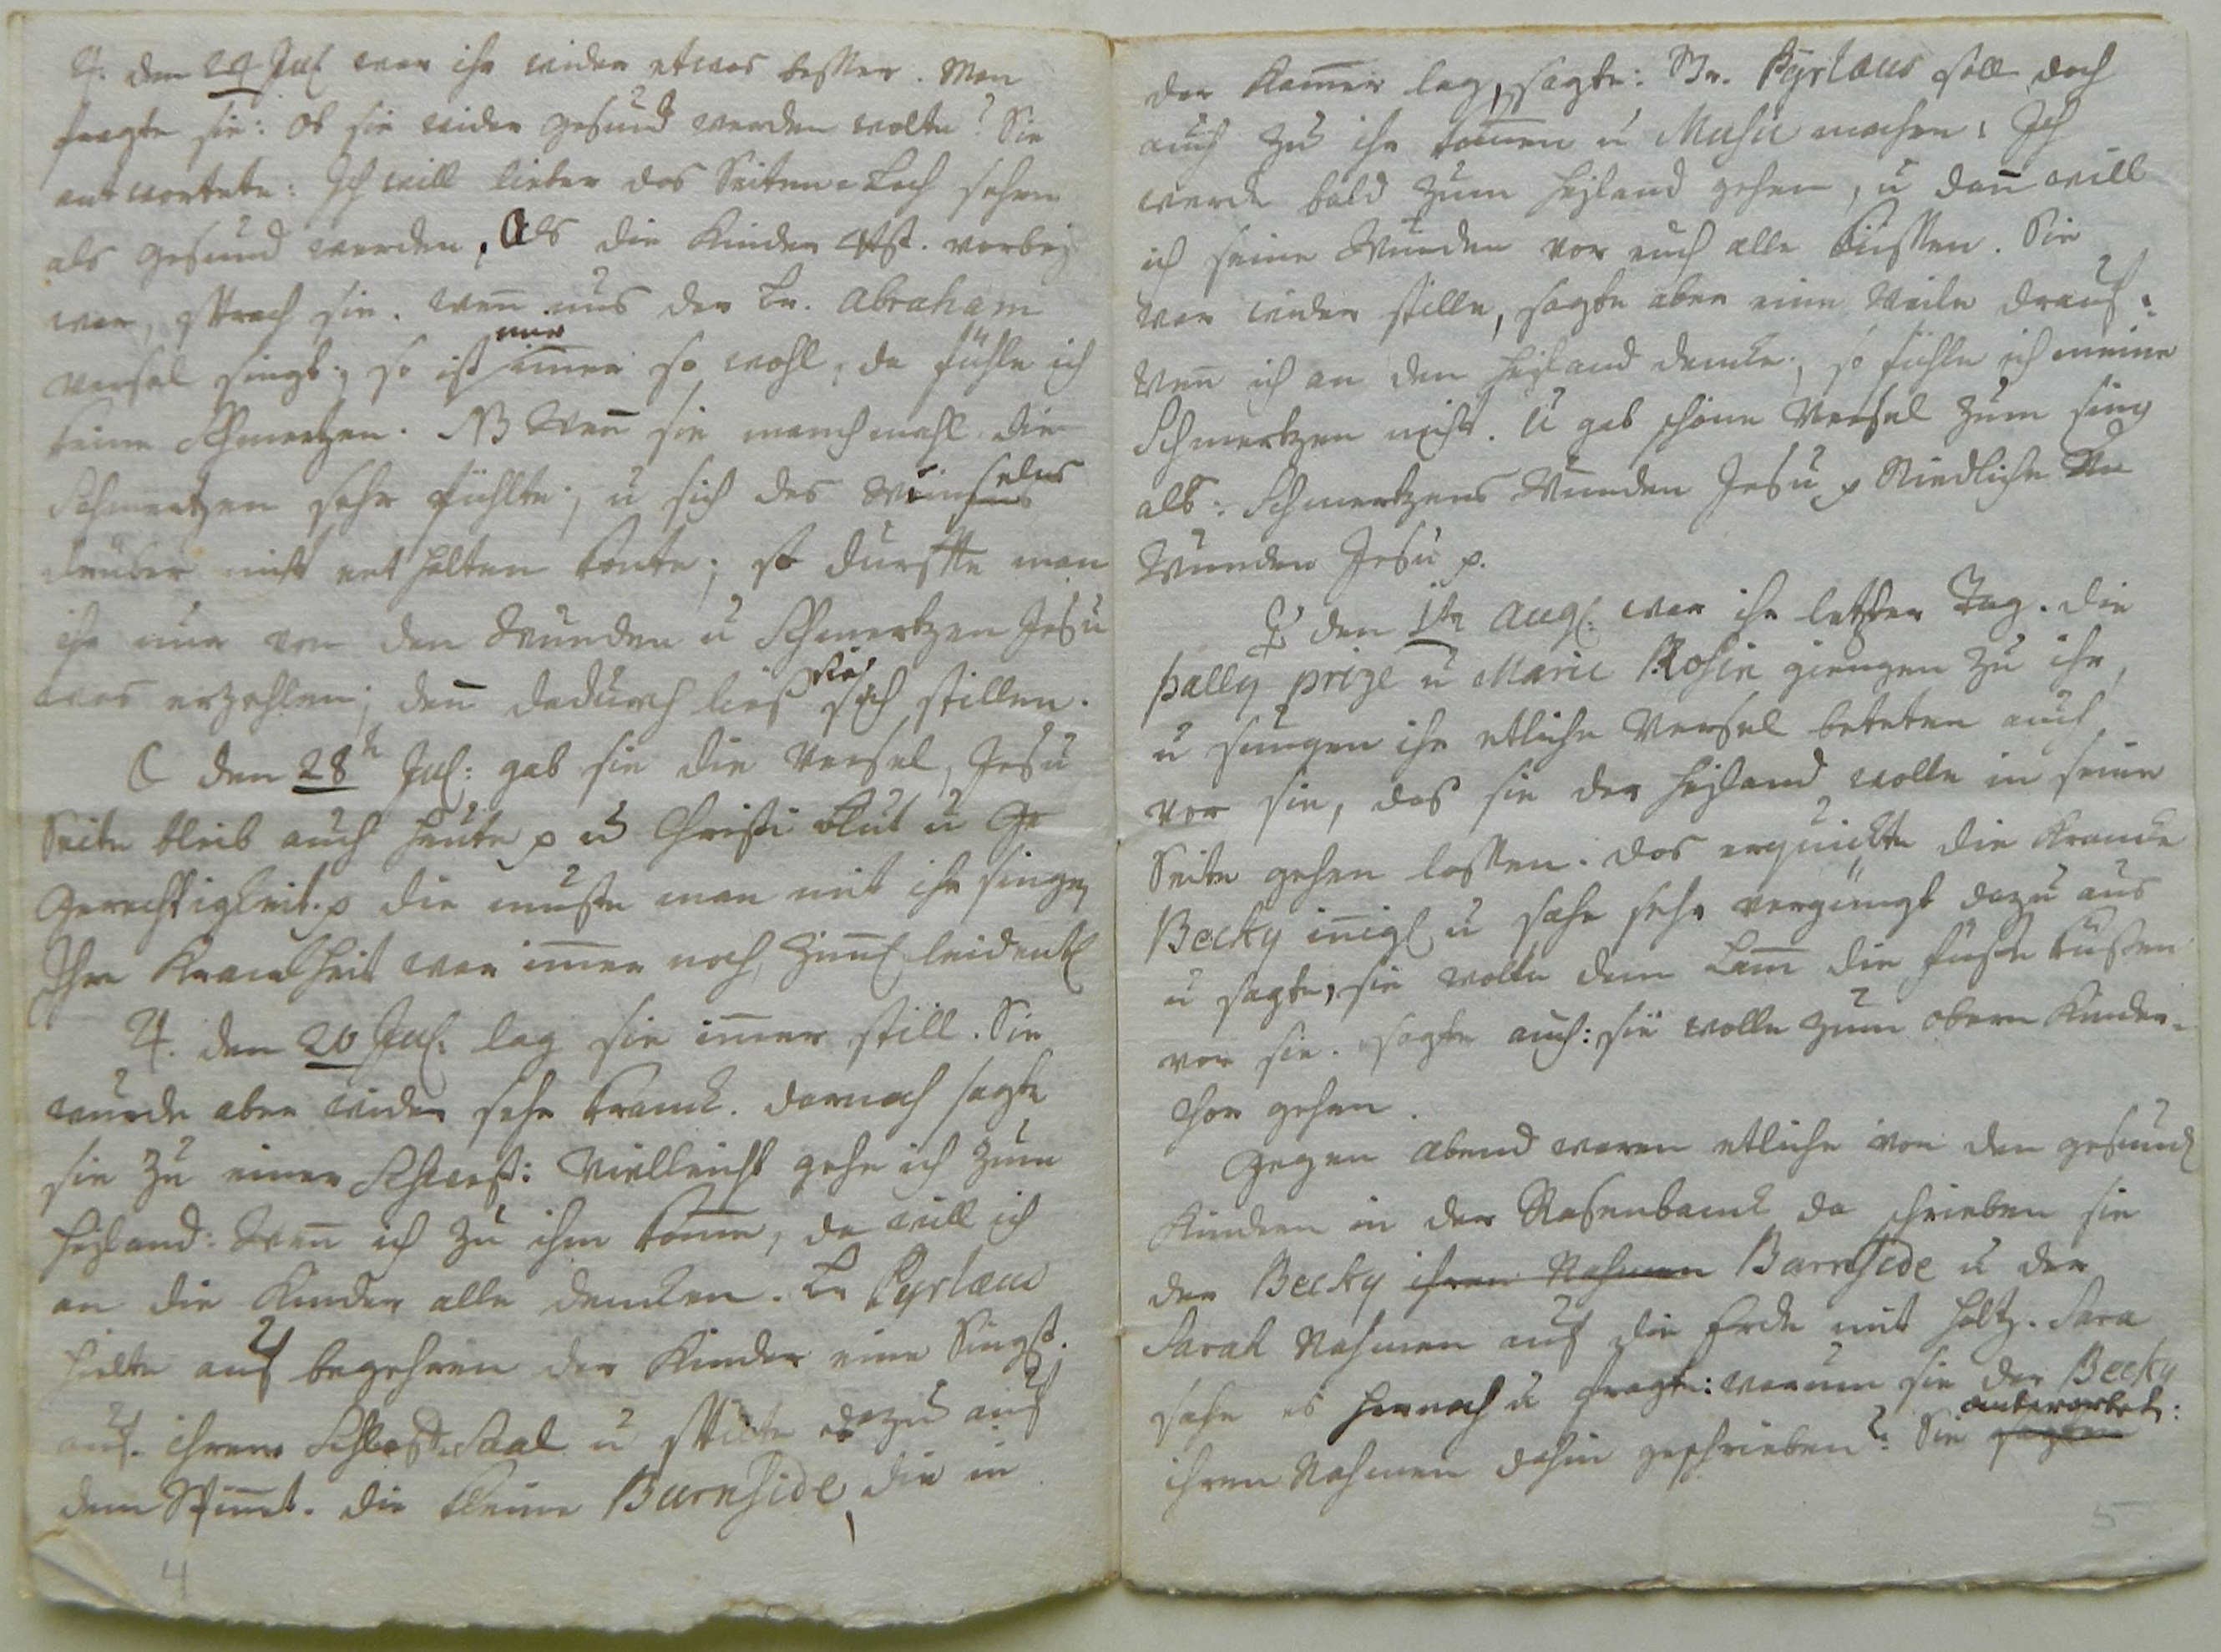 ♃. den 24 Jul. war ihr wider etwas beßer. Man
fragte sie: Ob sie wider gesund werden wolte? Sie
antwortete: Ich will lieber das Seiten-Loch sehen
als gesund werden, Als die Kinder St. vorbej
war, sprach sie. Wen̄ uns der Br. Abraham
Versel singt; so ist mir im̄er so wohl, da fühle ich
keine Schmertzen. NB Wen̄ sie manchmahl die
Schmertzen sehr fühlte; u sich des Winselns
drüber nicht enthalten konte; so durffte man
ihr nur von den Wunden u Schmertzen Jesu
was erzehlen; den̄ dadurch ließ sie sich stillen.
☾ den 28t Jul: gab sie die Versel, Jesu
Seite bleib auch heute p u Christi Blut u Ge
Gerechtigkeit. p die muste man mit ihr singen
Ihre Kranckheit war im̄er noch, ziml. leidentl
♃. den 20 Jul. lag sie im̄er still. Sie
wurde aber wider sehr kranck. Darnach sagte
sie zu einer Schwest: Vielleicht gehe ich zum
Heyland: Wen̄ ich zu ihm kom̄e, da will ich
an die Kinder alle dencken. Br Pyrlaeus
hielte auf begehren der Kinder eine Singst.
auf. ihrem Schlaff-Saal u spielte dazu auf
dem Spinnet. Die kleine Burnside, die in
4
der Kam̄er lag, sagte: Br. Pyrlaeus soll doch
auch zu ihr kom̄en u Music machen: Ich
werde bald zum Heyland gehen, u dan̄ will
ich seine Wunden vor euch alle küssen. Sie
war wider stille, sagte aber eine Weile drauf:
Wen̄ ich an den Heyland dencke, so fühle ich meine
Schmertzen nicht. U gab schöne Versel zum sing
als: Schmertzens Wunden Jesu p Niedliche
Wunden Jesu p.
♀ den 1tn Augl. war ihr letzter Tag. Die
Sally prize u Marie Rosin giengen zu ihr,
u sungen ihr etliche Versel beteten auch
vor sie, das sie der Heyland wolle in seine
Seite gehen lassen. Das erquickte die Krancke
Becky in̄igl. u sahe sehr vergnügt dazu aus
u sagte, sie wolte dem Lam̄ die füsse küssen
vor sie. sagte auch: sie wolle zum obern Kinder-
Chor gehen.
Gegen abend waren etliche von den gesund
Kindern in der Rasenbanck da schrieben sie
der Becky ihren Nahmen Burnside u der
Sarah Nahmen auf die Erde mit Holtz. Sara
sahe es hernach u fragte: warum sie der Becky
ihren Nahmen dahin geschrieben? Sie sagten antwortet:
5